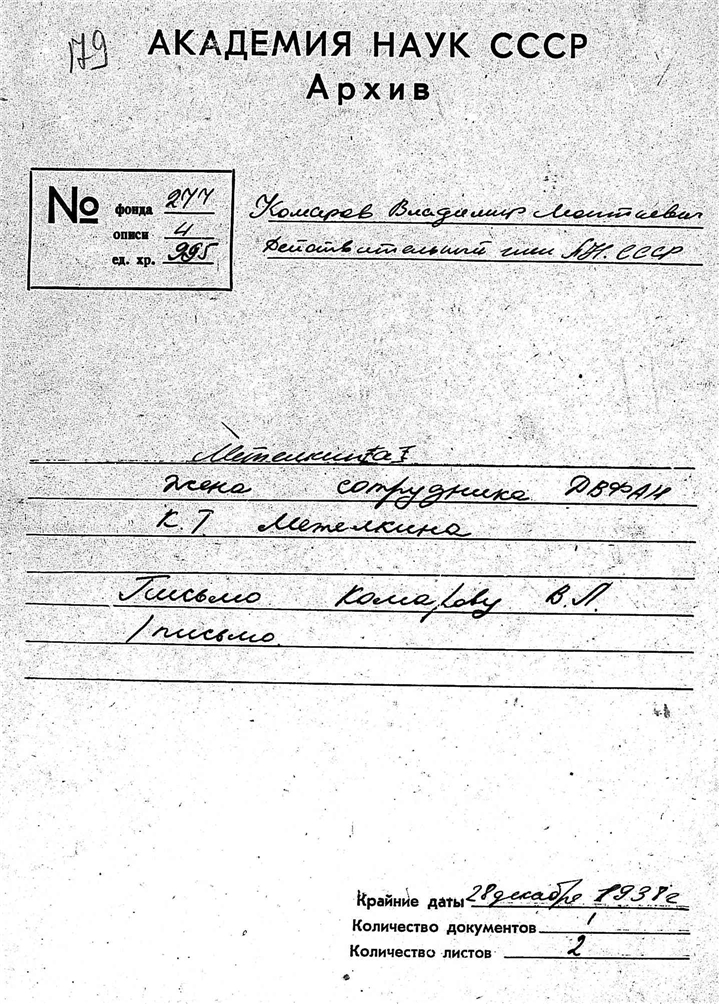 179
АКАДЕМИЯ НАУК СССР
Архив
№
фонда 277
описи 4
ед. хр. 995
Комаров Владимир Леонтьевич
Действительный член АН. СССР
Метелкина
жена сотрудника ДВФАН
К. Т Метелкина
Письмо Комарову В.Л.
1 письмо
Крайние даты 28 декабря 1938 г
Количество документов 1
Количество листов 2